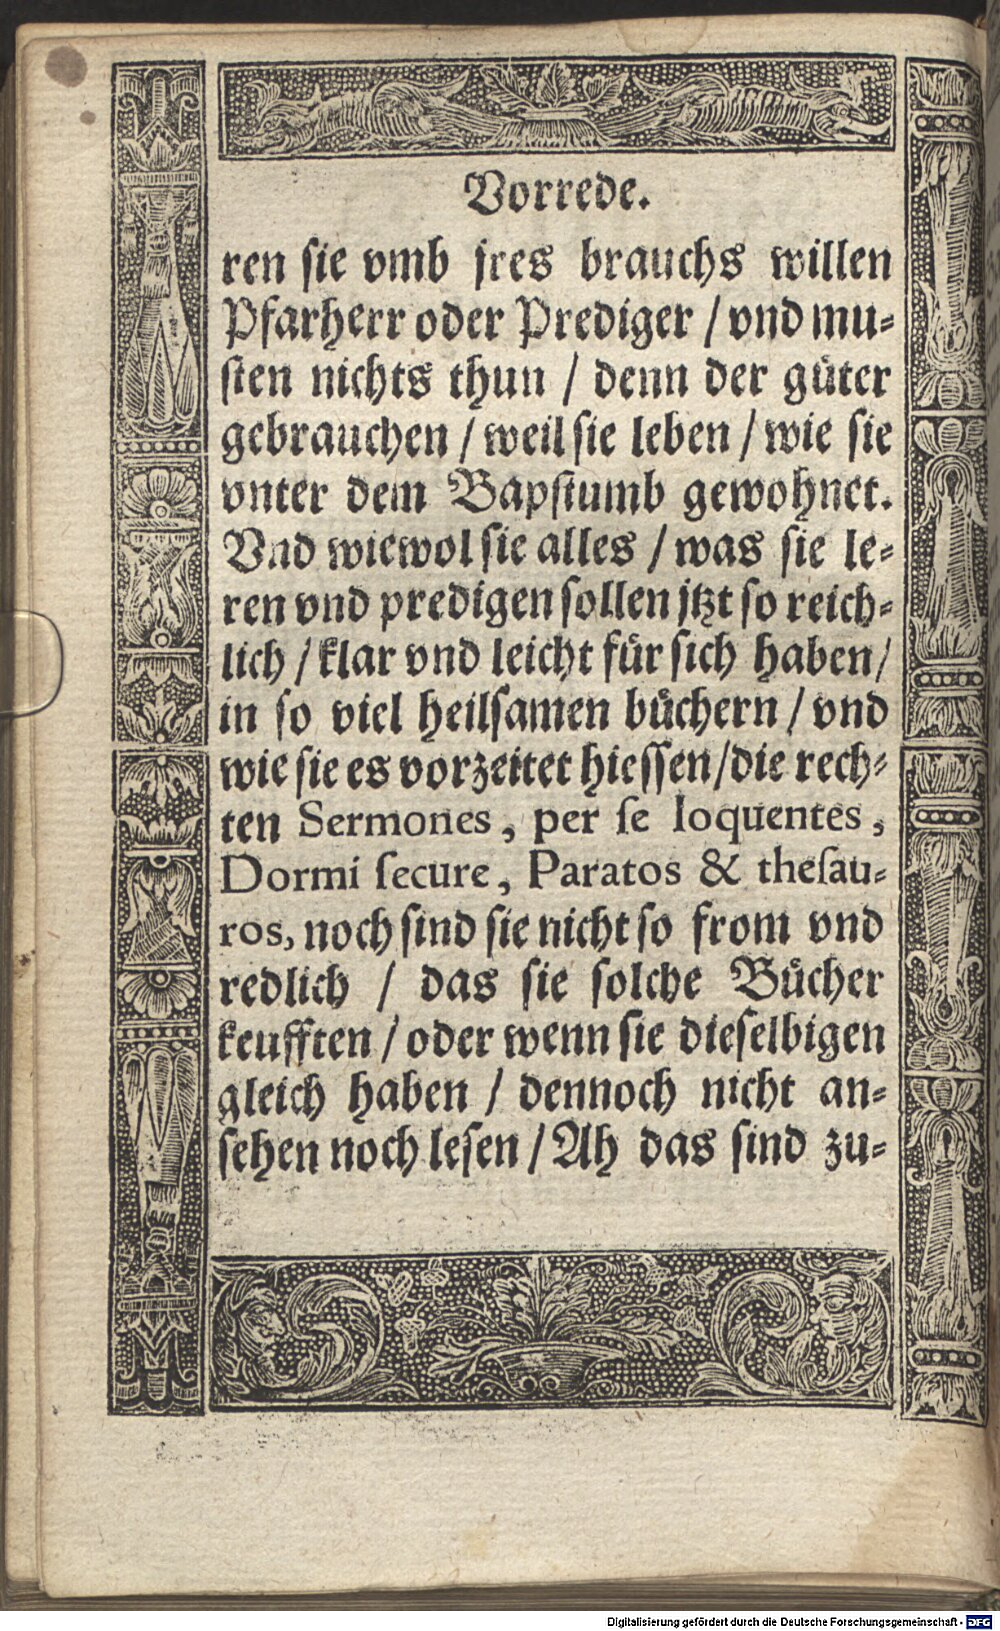 Vorrede.
ren sie vmb jres brauchs willen
Pfarherr oder Prediger / vnd mu⸗
sten nichts thun / denn der güter
gebrauchen / weil sie leben / wie sie
vnter dem Bapstumb gewohnet.
Vnd wiewol sie alles / was sie le⸗
ren vnd predigen sollen jtzt so reich⸗
lich / klar vnd leicht für sich haben /
in so viel heilsamen büchern / vnd
wie sie es vorzeitet hiessen / die rech⸗
ten Sermones, per se loquentes,
Dormi secure, Paratos & thesau⸗
ros, noch sind sie nicht so from vnd
redlich / das sie solche Bücher
keufften / oder wenn sie dieselbigen
gleich haben / dennoch nicht an⸗
sehen noch lesen / Ah das sind zu⸗
Digitalisierung gefördert durch die Deutsche Forschungsgemeinschaft - DFG